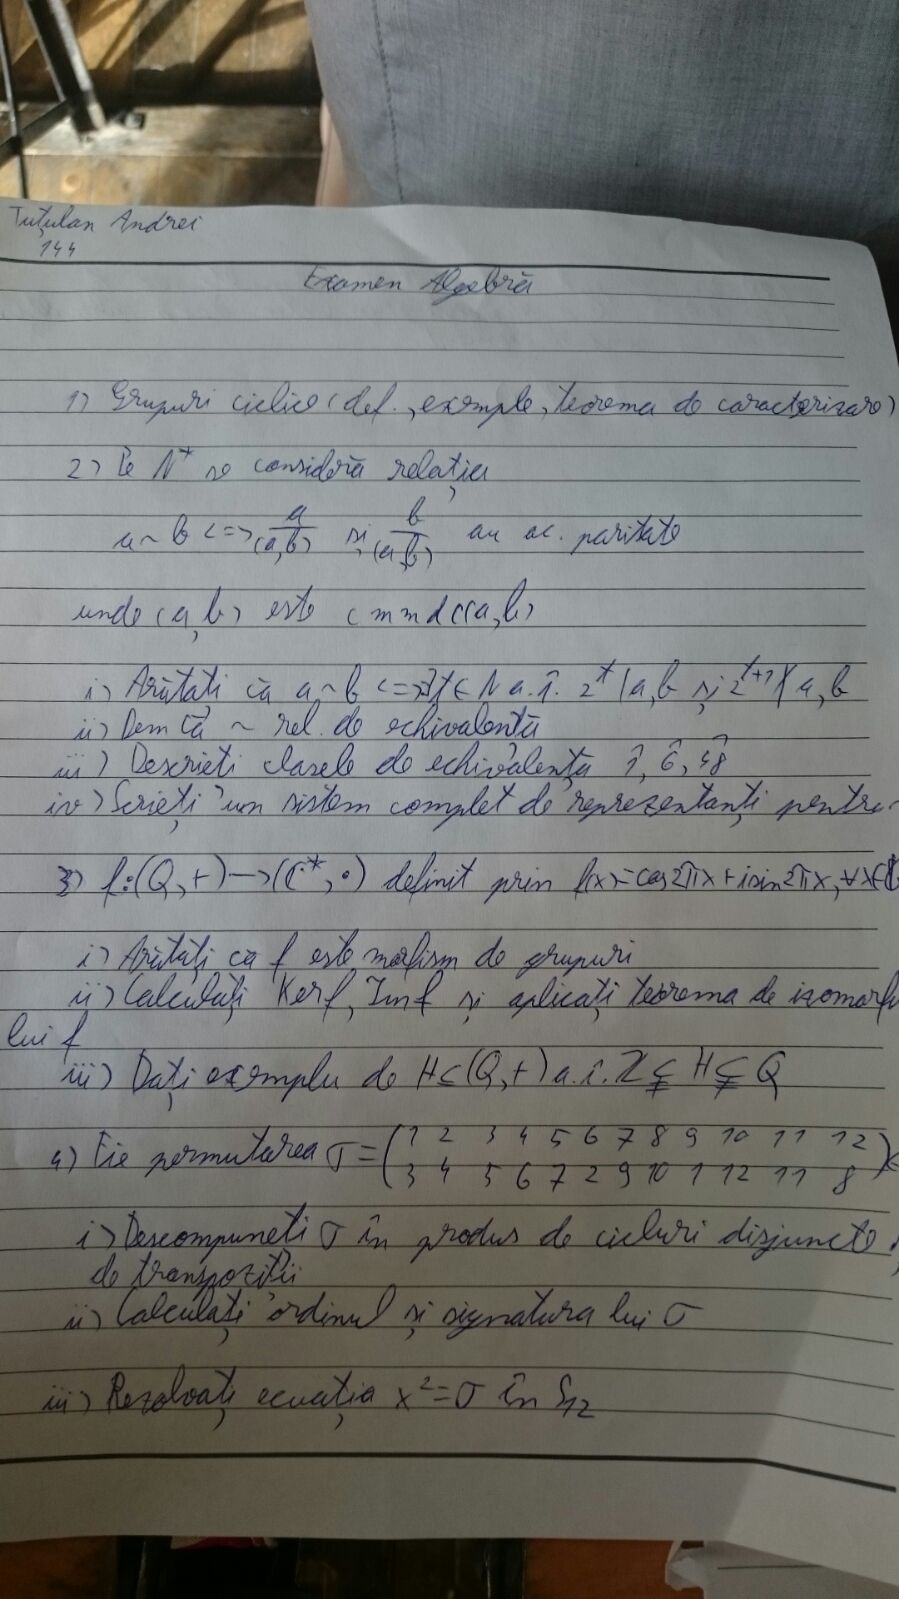 Tuțulan Andrei
144
Examen Algebră
1) Grupuri ciclice (def., exemple, teorema de caracterizare)
2) Pe N* se consideră relația
a ~ b <=> a/(a,b) și b/(a,b) au ac. paritate
unde (a,b) este cmmdc(a,b)
i) Arătați că a ~ b <=> ∃t ∈ N a.î. 2^t | a,b și 2^(t+1) ∤ a,b
ii) Dem că ~ rel. de echivalență
iii) Descrieti clasele de echivalență 1̂, 6̂, 48̂
iv) Scrieți un sistem complet de reprezentanți pentru ~
3) f:(Q,+)→(C*,·) definit prin f(x)=cos2πx+isin2πx, ∀x∈Q
i) Arătați ca f este morfism de grupuri
ii) Calculați Kerf, Imf și aplicați teorema de izomorf
lui f
iii) Dați exemplu de H≤(Q,+) a.î. Z⊊H⊊Q
4) Fie permutarea σ = (1 2 3 4 5 6 7 8 9 10 11 12)
3 4 5 6 7 2 9 10 1 12 11 8
i) Descompuneti σ în produs de cicluri disjuncte,
de transpozitii
ii) Calculați ordinul și signatura lui σ
iii) Rezolvați ecuația x²=σ în S₁₂